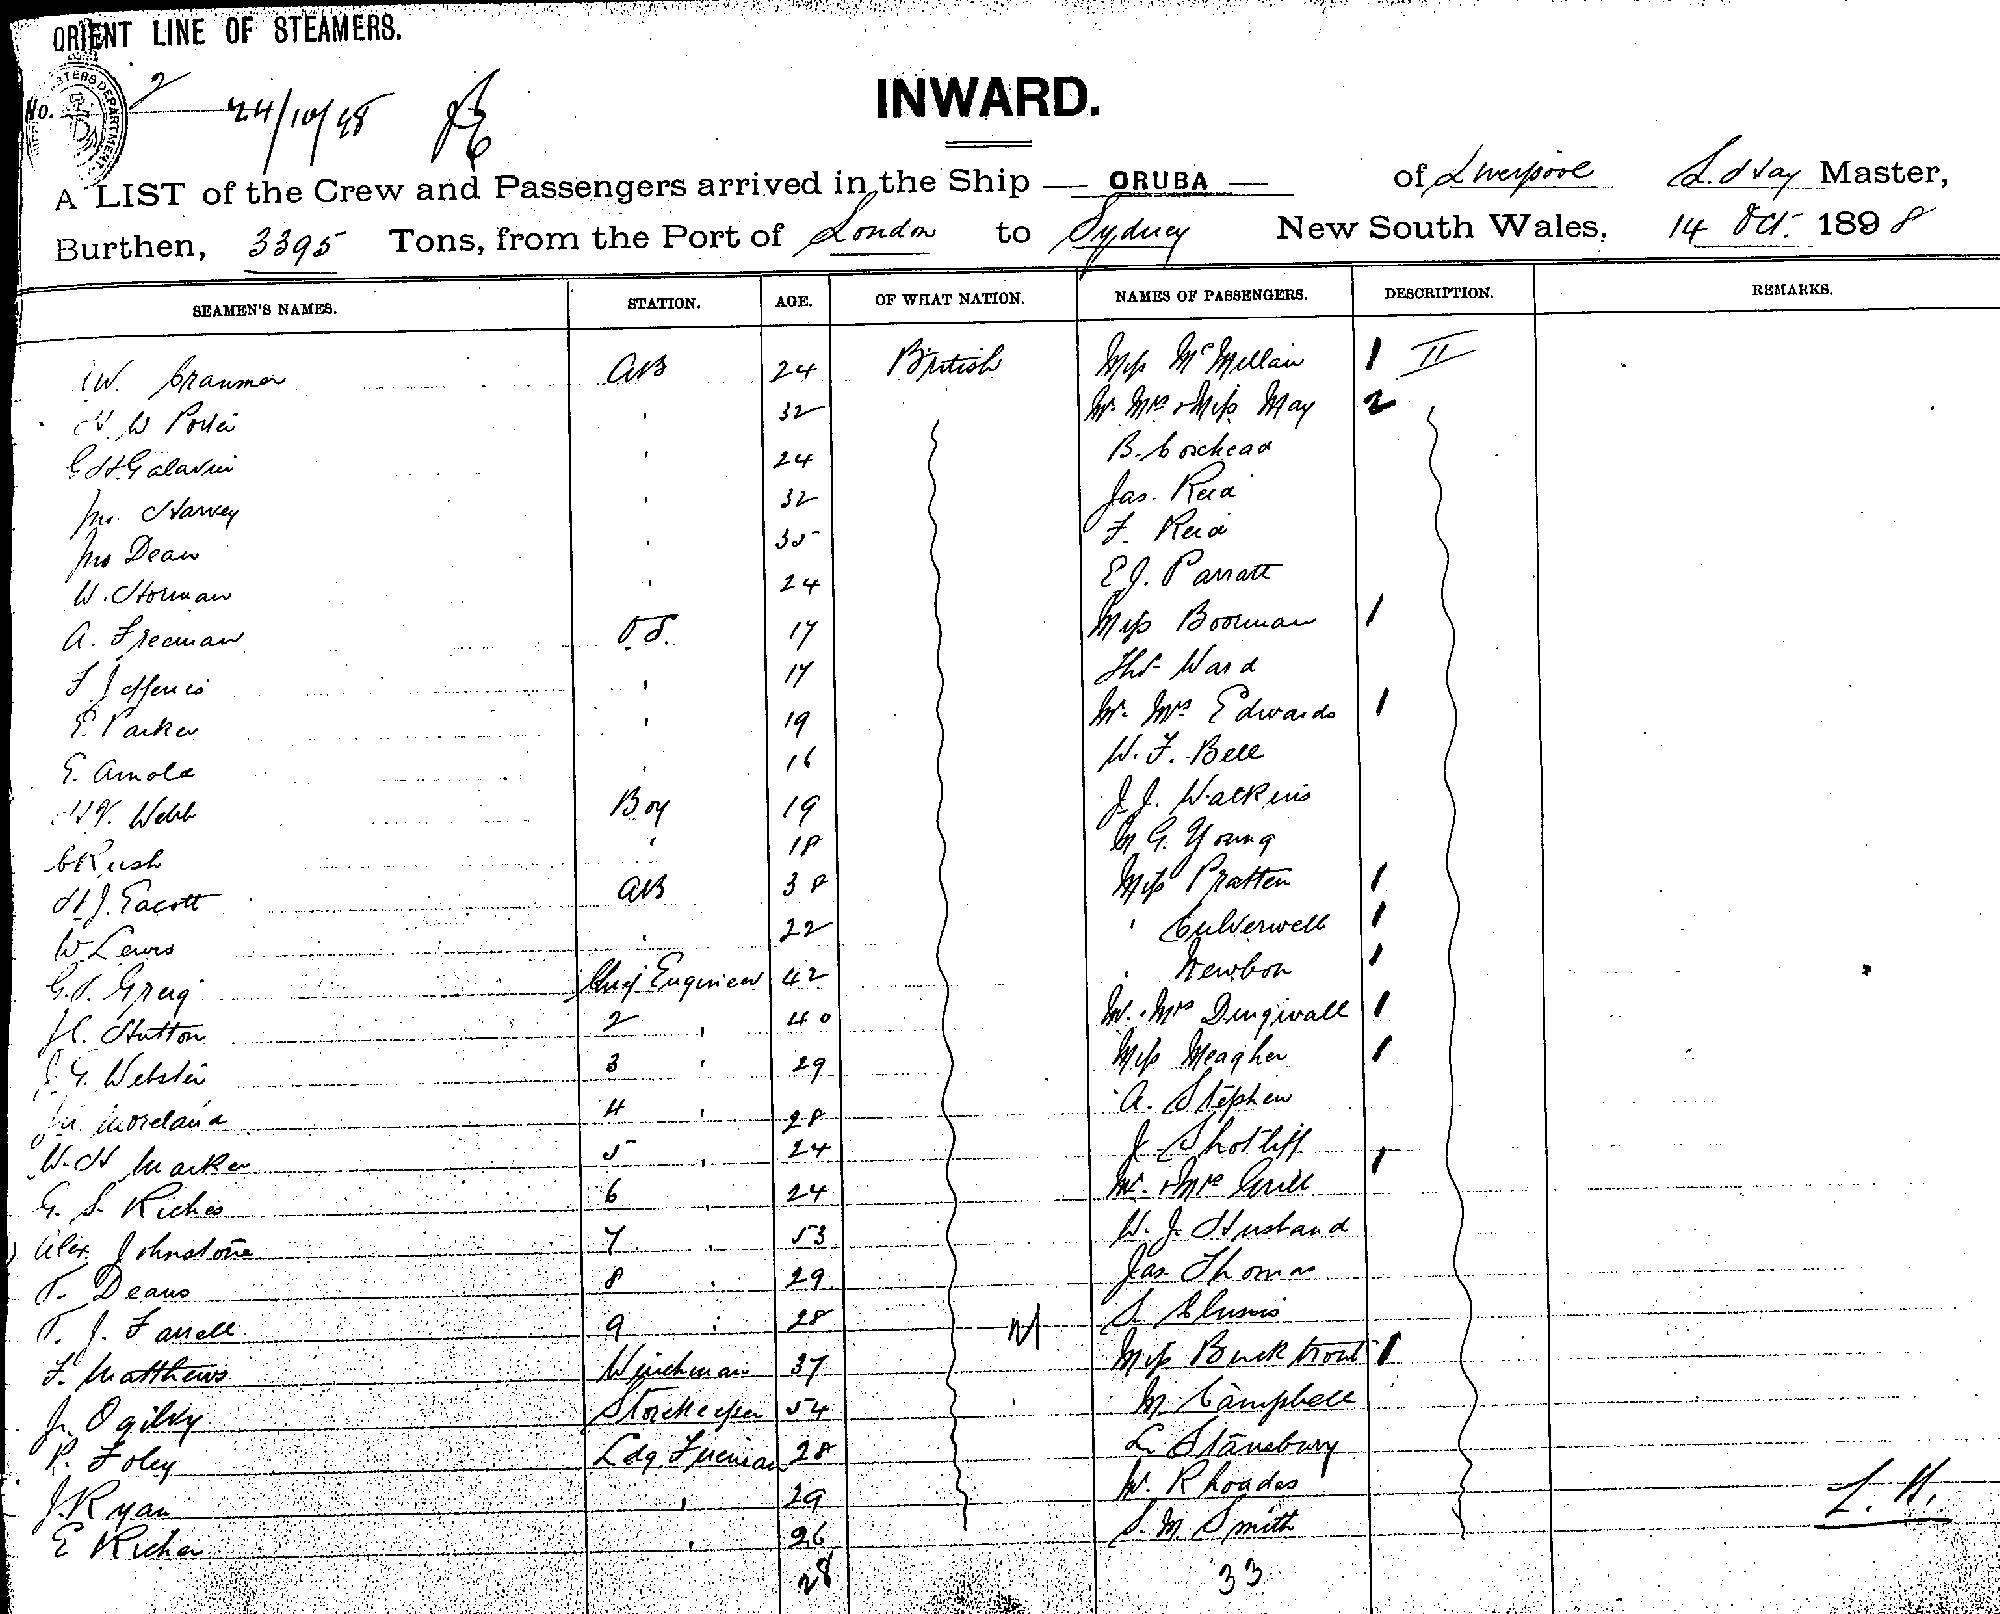 ORIENT LINE OF STEAMERS.
No. 2 24/10/98
INWARD.
A LIST of the Crew and Passengers arrived in the Ship — ORUBA — of Liverpool Master,
Burthen, 3395 Tons, from the Port of London to Sydney New South Wales, 14 Oct. 1898
SEAMEN'S NAMES. STATION. AGE. OF WHAT NATION. NAMES OF PASSENGERS. DESCRIPTION. REMARKS.
W. AB 24 British Miss McMillan 1 II
H W Porter " 32 Mr. Mrs & Miss May 2
24 B. Coxhead
Jno. Harvey " 32 Jas. Reid
Jno Dean " 35 F. Reid
W. Horman " 24 E J. Parratt
A. Freeman O.S. 17 Miss Boorman 1
F Jefferis " 17 Thos Ward
E. Parker " 19 Mr. Mrs Edwards 1
E. Arnold " 16 W. F. Bell
Webb Boy 19 J J. Watkins
C Rush " 18 M G. Young
H J. Eacott AB 38 Miss Pratten 1
W Lewis " 22 " Culverwell 1
G. S. Greig Chief Engineer 42 " Newbon 1
J C. Hutton 2 " 40 Mr. Mrs Dingwall 1
Webster 3 " 29 Miss Meagher 1
Moreland 4 " 28 A. Stephen
W. H Marker 5 " 24 J Shotliff
G. S. Riches 6 " 24 Mr. & Mrs Grill 1
Alex. Johnstone 7 " 53 W. J. Husband
T. Deans 8 " 29 Jas Thomas
T. J. Farrell 9 " 28 S.
F. Matthews Winchman 37 Miss Bucktrout 1
J. Ogilvy Storekeeper 54 M Campbell
P. Foley Ldg Fireman 28 L. Stansbury
J. Ryan " 29 W. Rhoades
E Richer " 26 S. M Smith
L. H.
28 33